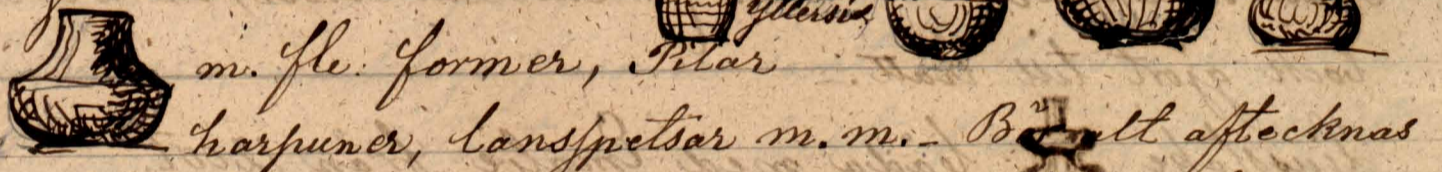 m. fle. former, Pilar
harpuner, lansspetsar m. m. – aftecknas